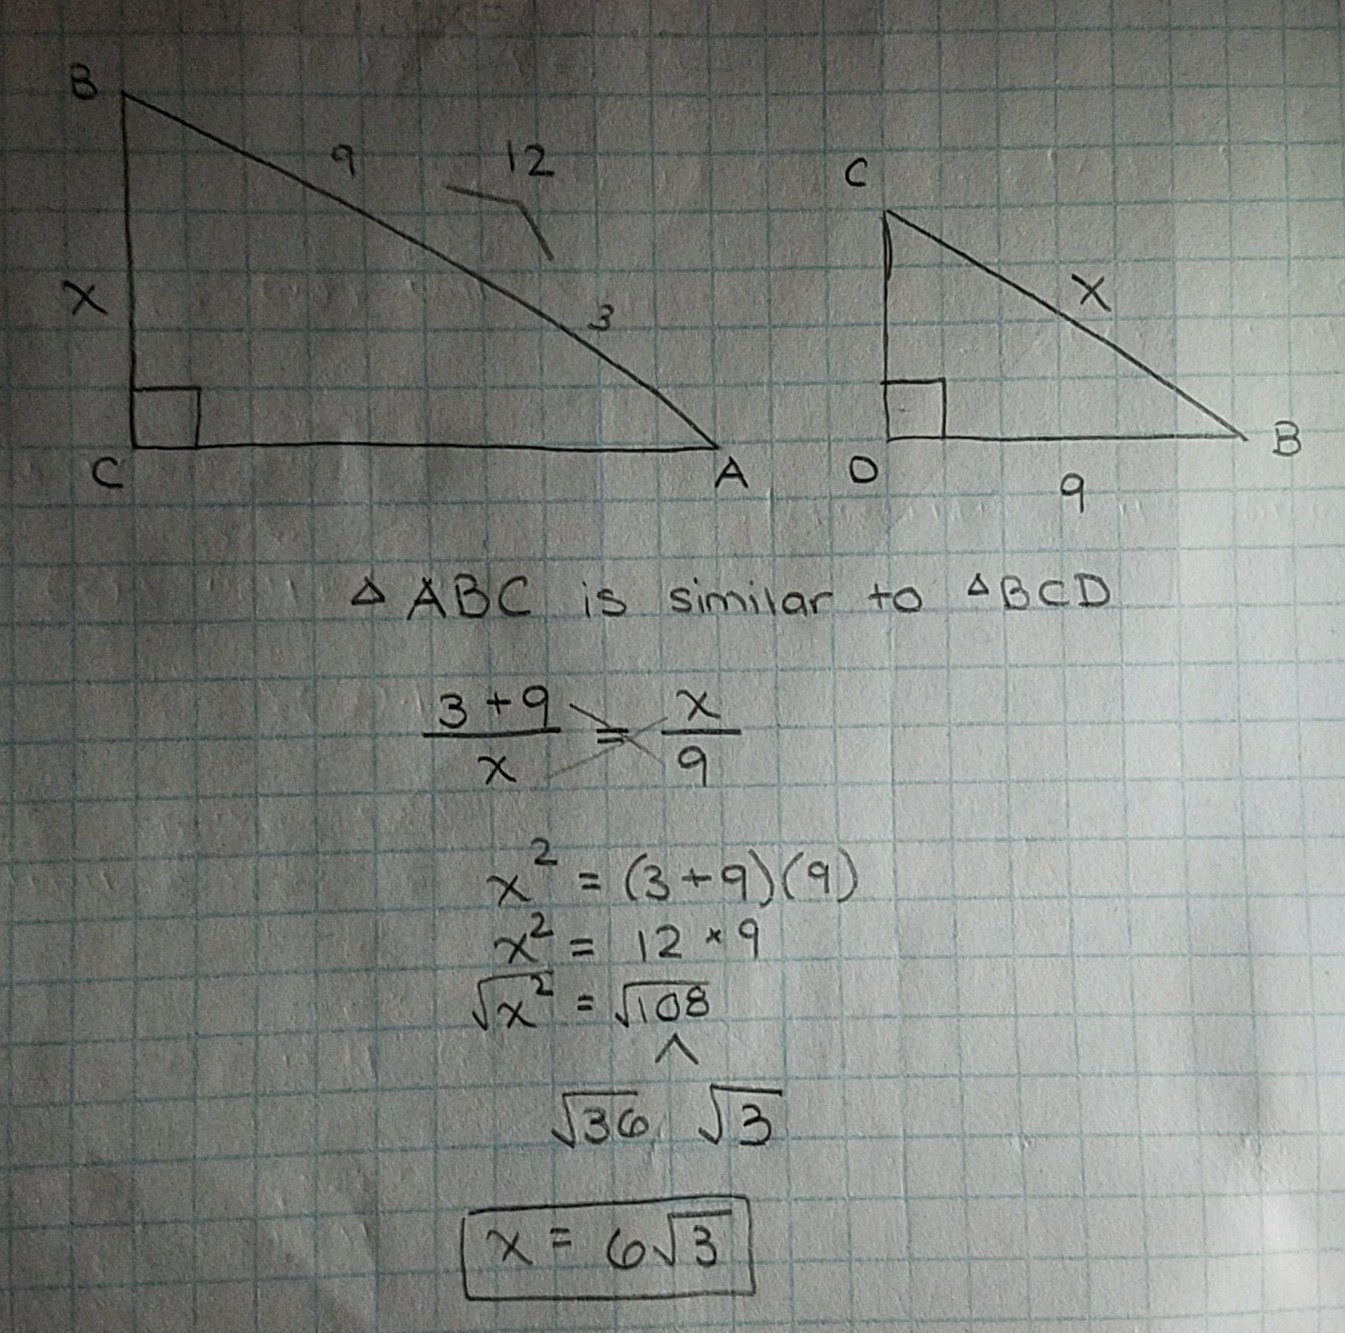 B
9 12
C
x
x
3
C A D B
9
△ ABC is similar to △BCD
3+9/x = x/9
x² = (3+9)(9)
x² = 12 * 9
√x² = √108
√36 √3
x = 6√3